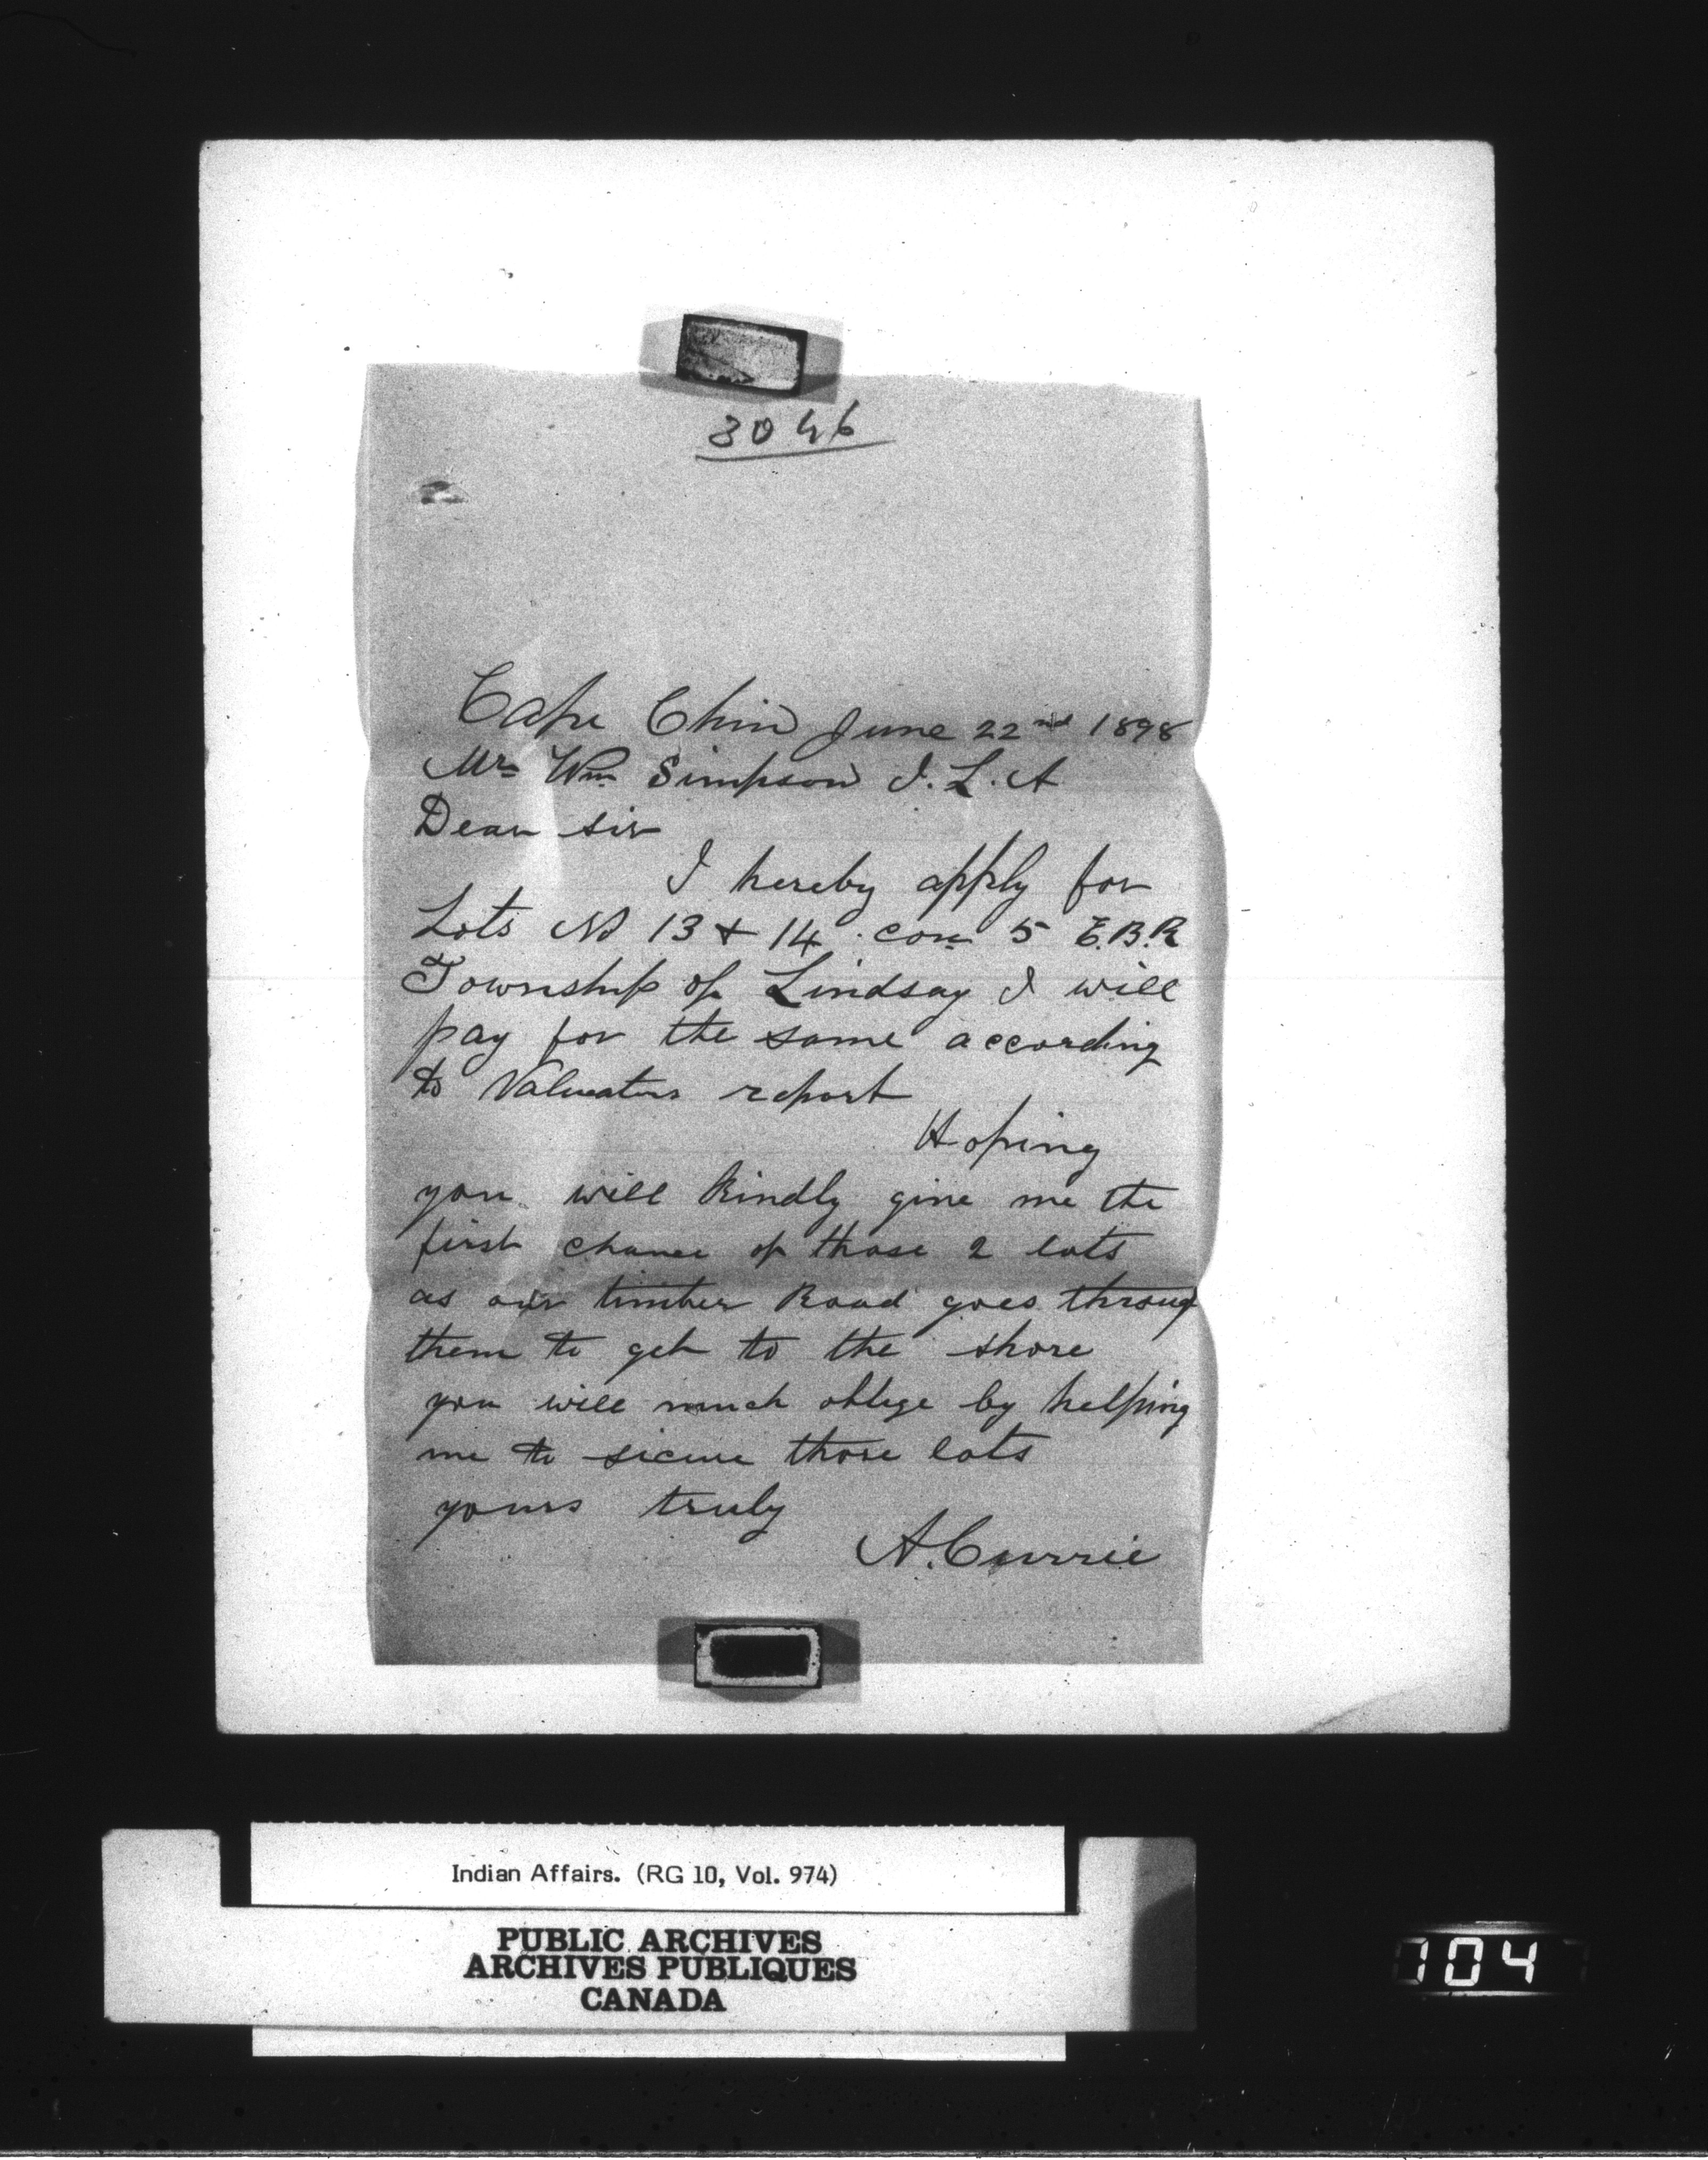 3046
Cape Chin June 22nd 1898
Mr Wm Simpson I. L. A
Dear sir
I hereby apply for
Lots No 13 & 14 con 5 E.B.R
Township of Lindsay I will
pay for the same according
to Valuators report
Hoping
you will Kindly give me the
first chance of those 2 lots
as our timber Road goes throug
them to get to the shore
you will much oblige by helping
me to sicure those lots
yours truly
A. Currie
Indian Affairs. (RG 10, Vol. 974)
PUBLIC ARCHIVES
ARCHIVES PUBLIQUES
CANADA
104